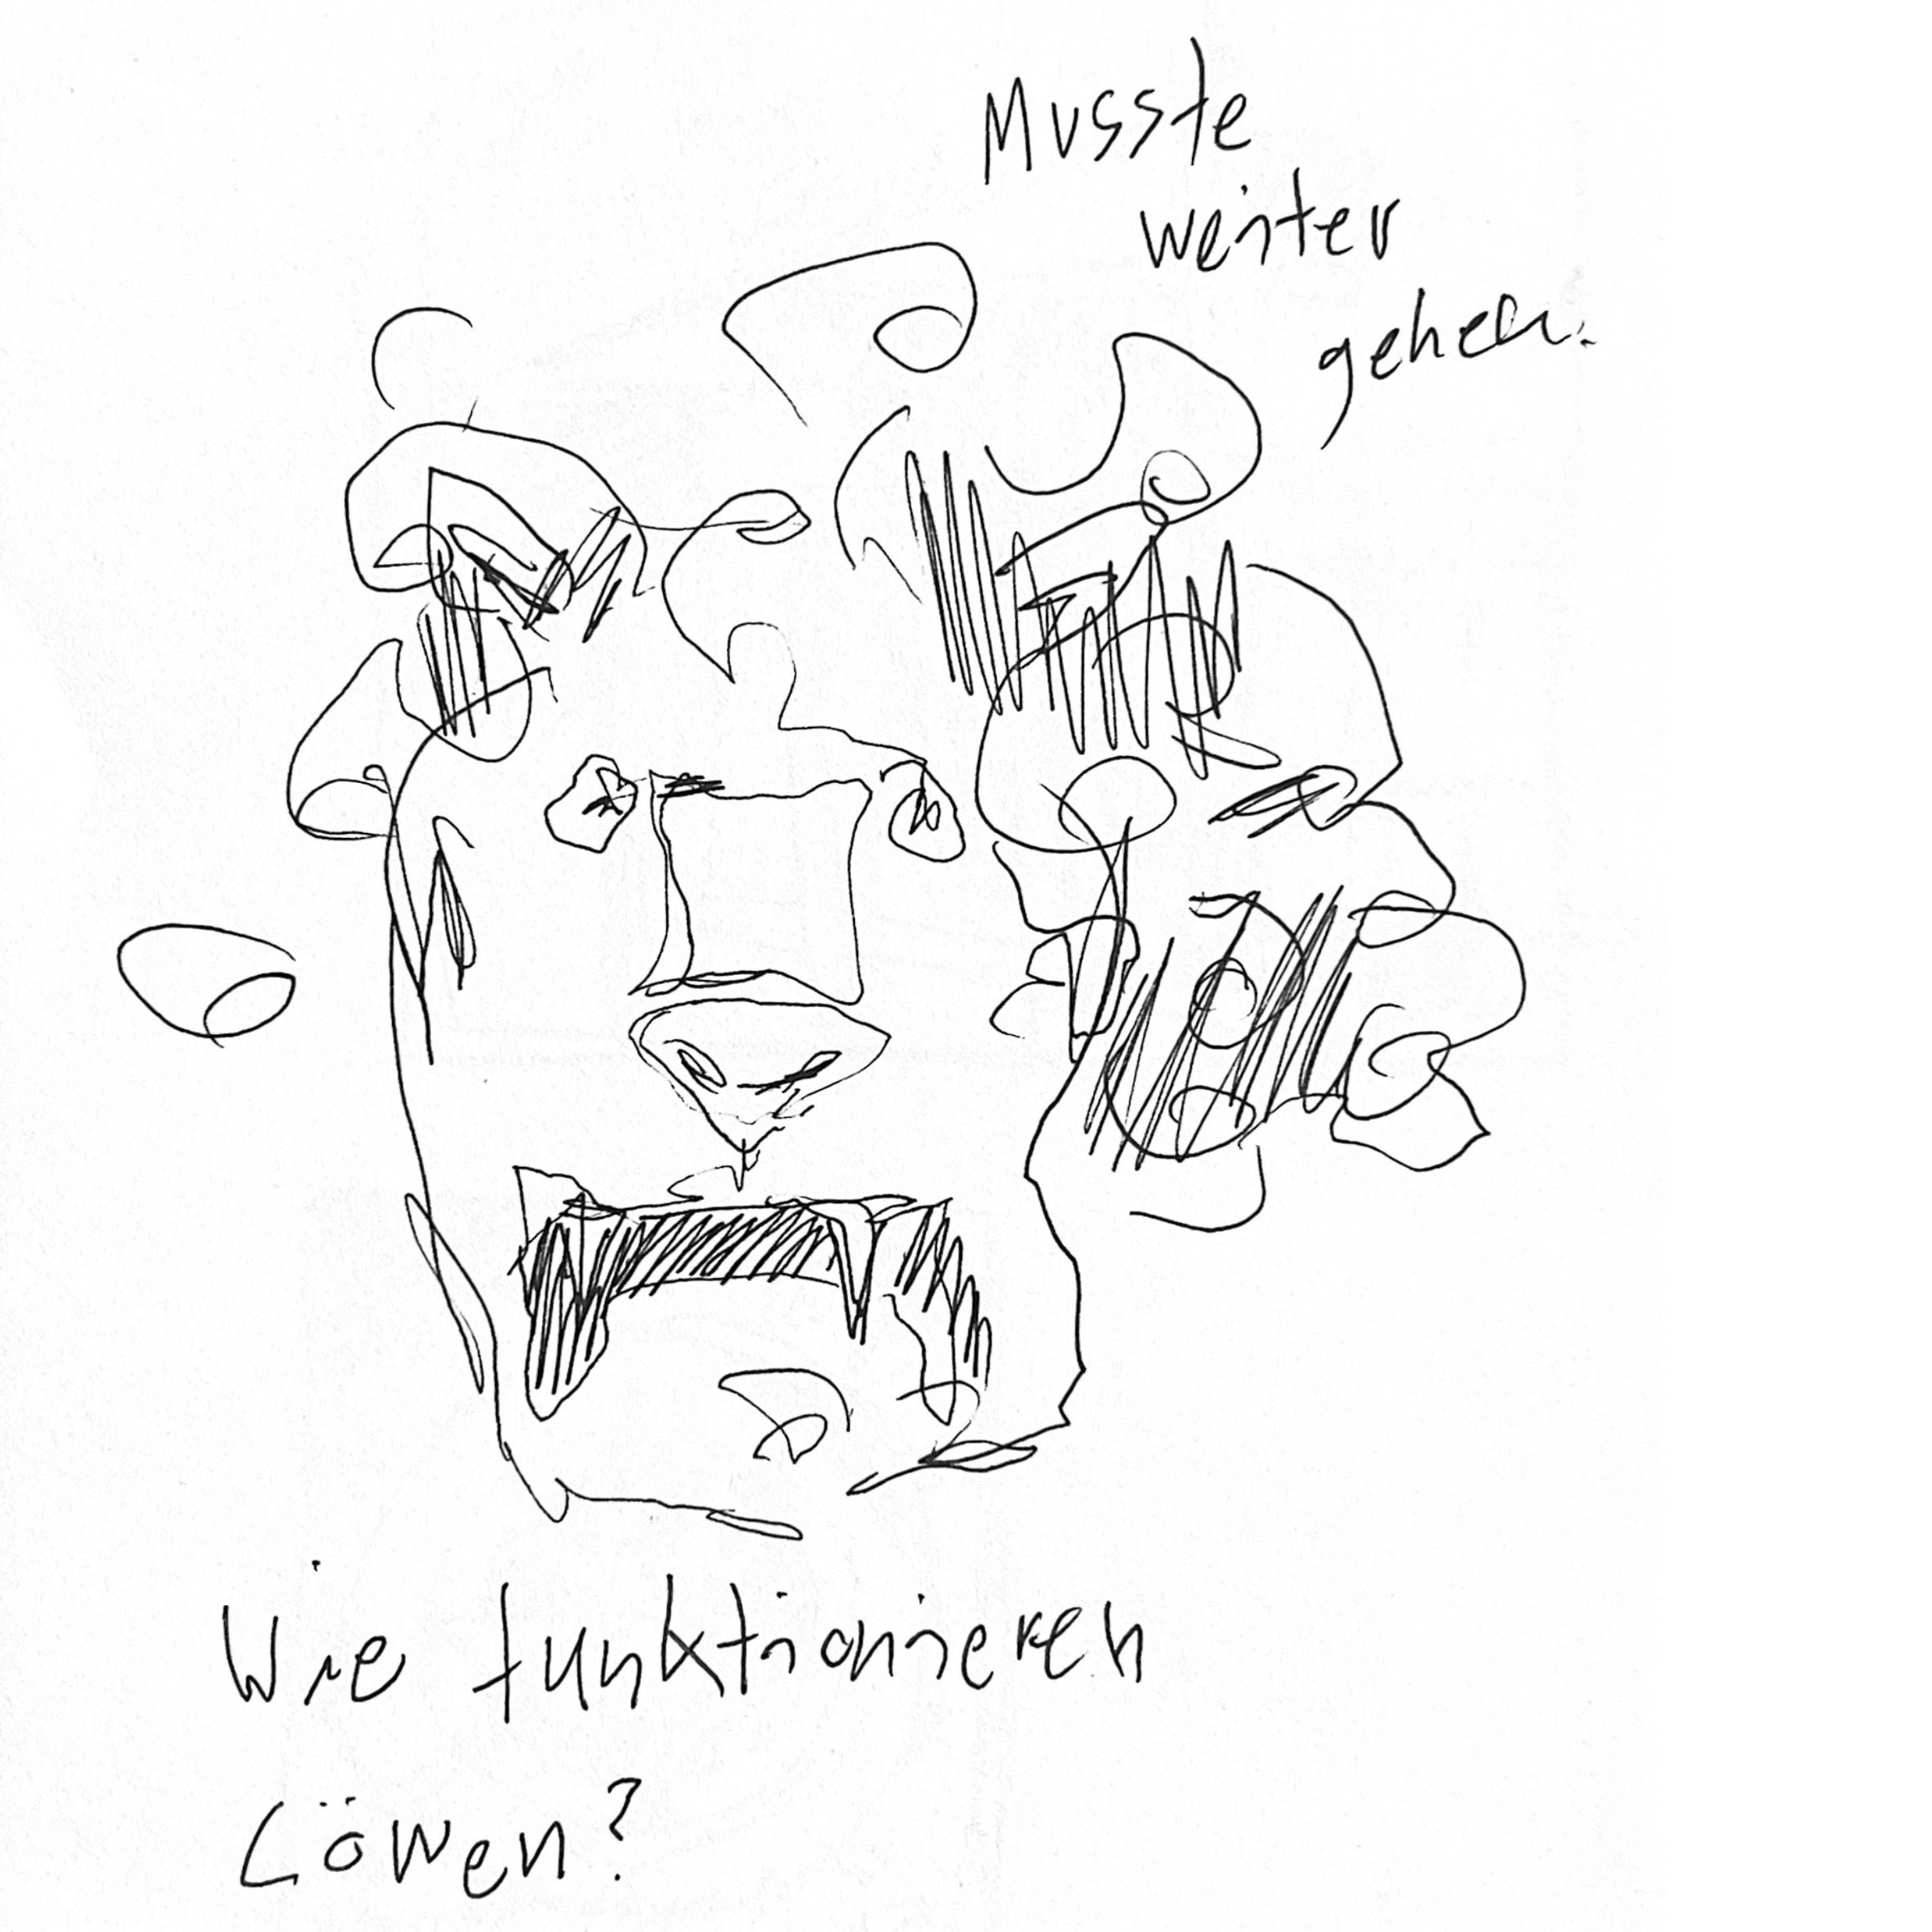 Musste
weiter
gehen.
Wie funktionieren
Löwen?